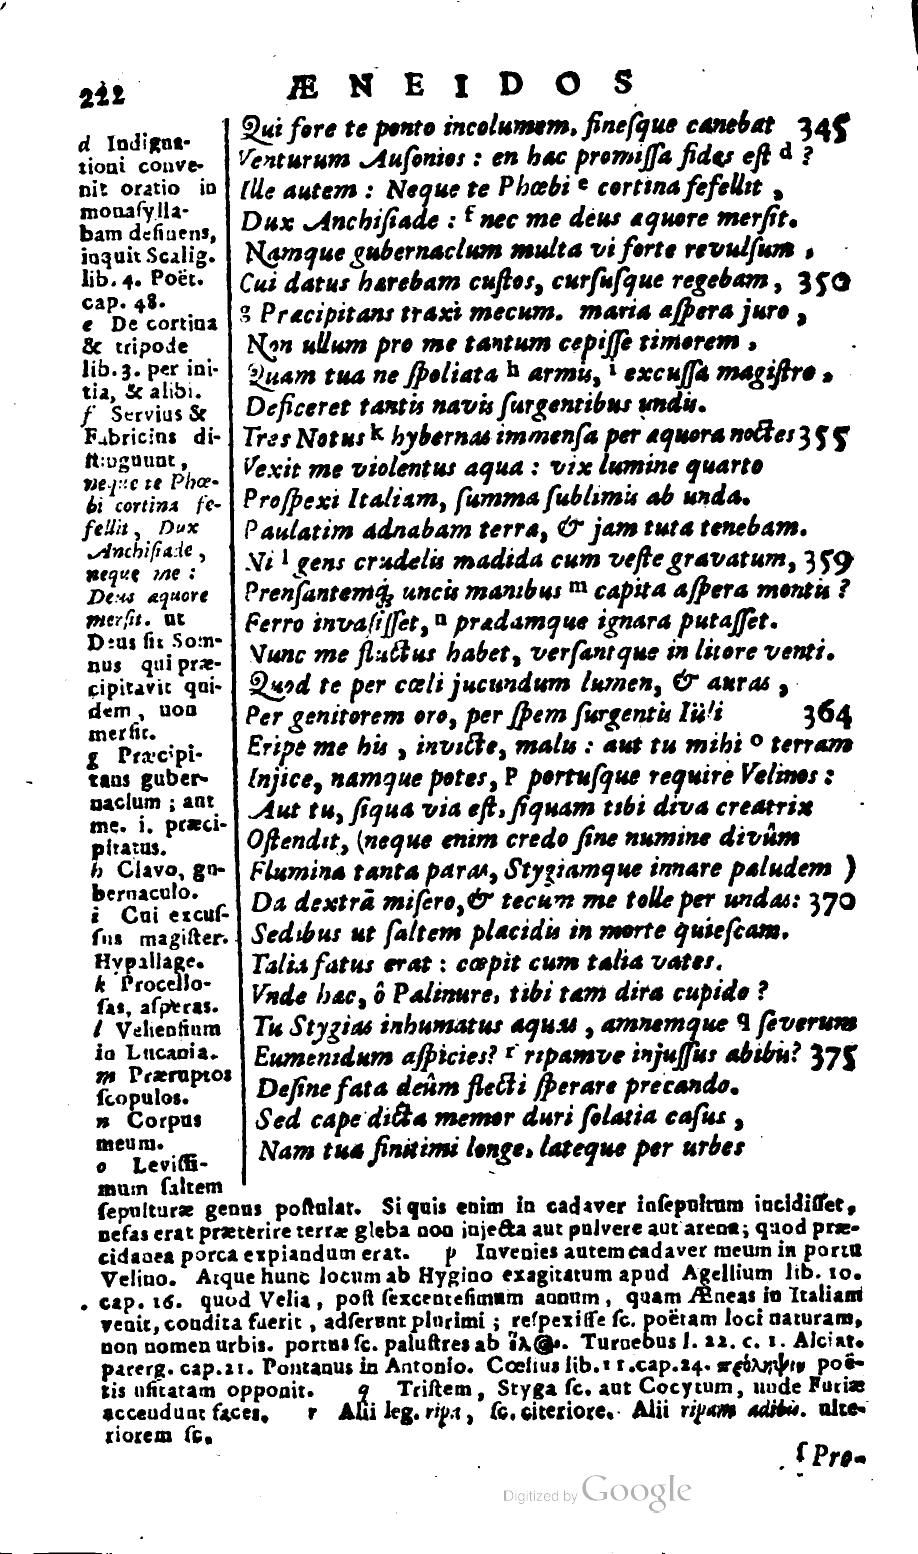 222
ÆNEIDOS
d Indigna-
tioni conve-
nit oratio in
monaſylla-
bam deſinens,
inquit Scalig.
lib. 4. Poët.
cap. 48.
e De cortina
& tripode
lib. 3. per ini-
tia, & alibi.
f Servius &
Fabricius di-
ſtinguunt,
neque te Phœ-
bi cortina fe-
fellit, Dux
Anchiſiade,
neque me:
Deus æquore
merſit. ut
Deus ſit Som-
nus qui præ-
cipitavit qui-
dem, non
merſit.
g Præcipi-
tans guber-
naclum; aut
me. i. præci-
pitatus.
h Clavo, gu-
bernaculo.
i Cui excuſ-
ſus magiſter.
Hypallage.
k Procello-
ſas, aſperas.
l Velienſium
in Lucania.
m Præruptos
ſcopulos.
n Corpus
meum.
o Leviſſi-
mum ſaltem
Qui fore te ponto incolumem, fineſque canebat 345
Venturum Auſonios: en hæc promiſſa fides eſt d ?
Ille autem: Neque te Phœbi e cortina fefellit,
Dux Anchiſiade: f nec me deus æquore merſit.
Namque gubernaclum multa vi forte revulſum,
Cui datus hærebam cuſtos, curſuſque regebam, 350
g Præcipitans traxi mecum. maria aſpera juro,
Non ullum pro me tantum cepiſſe timorem,
Quam tua ne ſpoliata h armis, i excuſſa magiſtro,
Deficeret tantis navis ſurgentibus undis.
Tres Notus k hybernas immenſa per æquora noctes 355
Vexit me violentus aqua: vix lumine quarto
Proſpexi Italiam, ſumma ſublimis ab unda.
Paulatim adnabam terræ, & jam tuta tenebam.
Ni l gens crudelis madida cum veſte gravatum, 359
Prenſantemq; uncis manibus m capita aſpera montis?
Ferro invaſiſſet, n prædamque ignara putaſſet.
Nunc me fluctus habet, verſantque in litore venti.
Quod te per cœli jucundum lumen, & auras,
Per genitorem oro, per ſpem ſurgentis Iüli 364
Eripe me his, invicte, malis: aut tu mihi o terram
Injice, namque potes, p portuſque require Velinos:
Aut tu, ſiqua via eſt, ſiquam tibi diva creatrix
Oſtendit, (neque enim credo ſine numine divûm
Flumina tanta paras, Stygiamque innare paludem )
Da dextrā miſero, & tecum me tolle per undas: 370
Sedibus ut ſaltem placidis in morte quieſcam.
Talia fatus erat: cœpit cum talia vates.
Vnde hæc, ô Palinure, tibi tam dira cupido?
Tu Stygias inhumatus aquas, amnemque q ſeverum
Eumenidum aſpicies? r ripamve injuſſus abibis? 375
Deſine fata deûm flecti ſperare precando.
Sed cape dicta memor duri ſolatia caſus,
Nam tua finitimi longe, lateque per urbes
ſepulturæ genus poſtulat. Si quis enim in cadaver inſepultum incidiſſet,
nefas erat præterire terræ gleba non injecta aut pulvere aut arena; quod præ-
cidanea porca expiandum erat. p Invenies autem cadaver meum in portu
Velino. Atque hunc locum ab Hygino exagitatum apud Agellium lib. 10.
cap. 16. quod Velia, poſt ſexcenteſimum annum, quam Æneas in Italiam
venit, condita fuerit, adſerunt plurimi; reſpexiſſe ſc. poëtam loci naturam,
non nomen urbis. portus ſc. paluſtres ab Turnebus l. 22. c. 1. Alciat.
parerg. cap. 21. Pontanus in Antonio. Cœlius lib. 11. cap. 24. πρόληψιν poë-
tis uſitatam opponit. q Triſtem, Styga ſc. aut Cocytum, unde Furiæ
accendunt faces. r Alii leg. ripa, ſc. citeriore. Alii ripam adibis. ulte-
riorem ſc.
ſ Pro-
Digitized by Google